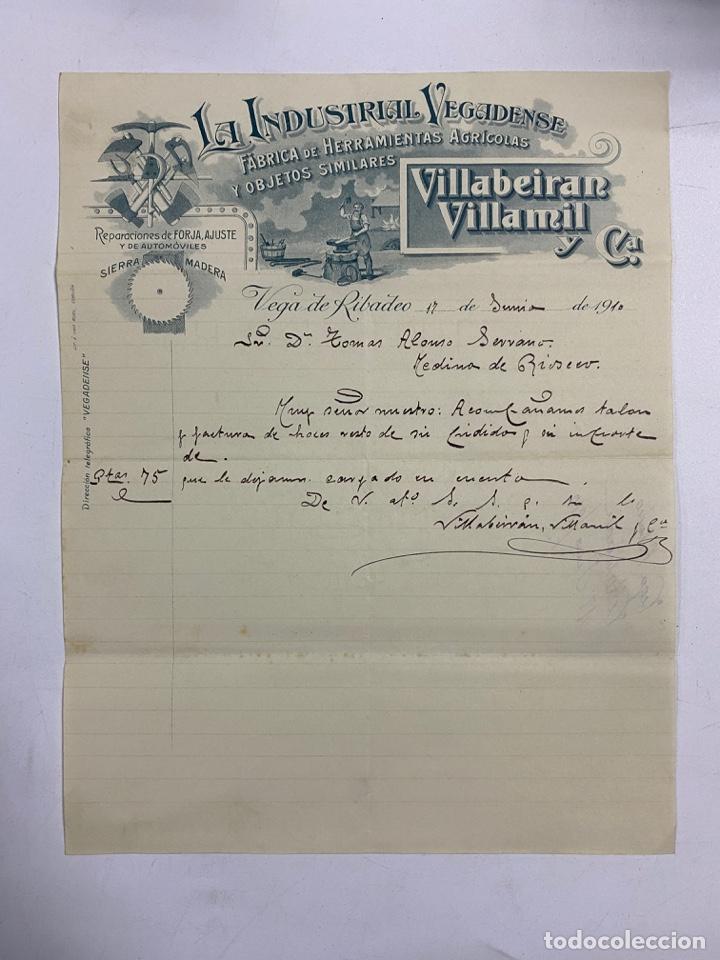 La Industrial Vegadense
Fábrica de Herramientas Agrícolas
y objetos similares
Villabeiran
Villamil
y Cía.
Reparaciones de FORJA, AJUSTE
Y DE AUTOMÓVILES
SIERRA MADERA
Dirección telegráfica "VEGADENSE"
Vega de Ribadeo 17 de Junio de 1910
Sr. Dn. Tomas Alonso Serrano.
Medina de Rioseco.
Muy señor nuestro: Acompañamos talon
y factura de hoces resto de su pedido y su importe
de.
Ptas. 75 que le dejamos cargado en cuenta.
De V. atº. S. S. q.
Villabeirán, Villamil y Cía
todocoleccion
todocoleccion.net